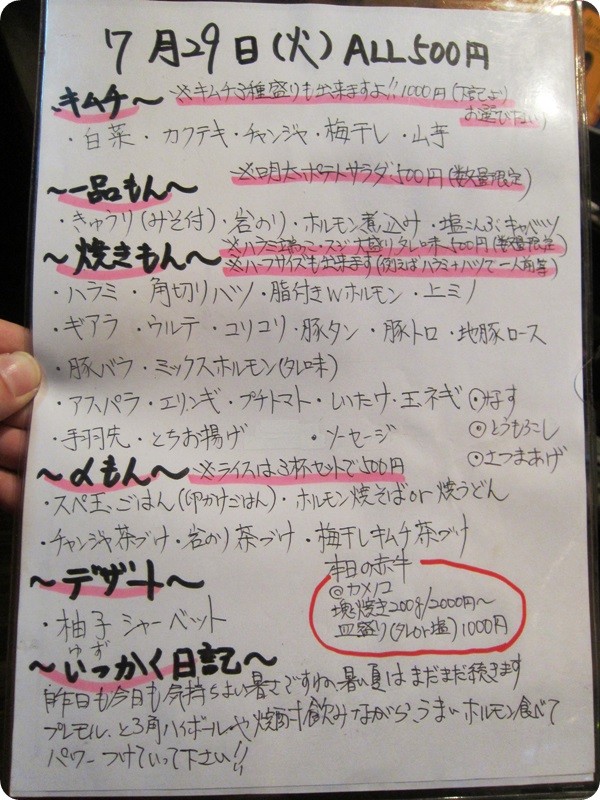 7月29日(火) ALL500円
キムチ〜 ※キムチ3種盛りも出来ますよ!! 1000円(下記より
お選び下さい)
・白菜・カクテキ・チャンジャ・梅干し・山芋
〜一品もん〜 ※明太ポテトサラダ500円(数量限定)
・きゅうり(みそ付)・岩のり・ホルモン煮込み・塩こんぶキャベツ
〜焼きもん〜 ※ハラミ端っこ・スジ大盛りタレ味500円(数量限定)
※ハーフサイズも出来ます(例えばハラミ+ハツで一人前等)
・ハラミ・角切りハツ・脂付きWホルモン・上ミノ
・ギアラ・ウルテ・コリコリ・豚タン・豚トロ・地豚ロース
・豚バラ・ミックスホルモン(タレ味)
・アスパラ・エリンギ・プチトマト・しいたけ・玉ネギ ⦿なす
・手羽先・とちお揚げ ・ソーセージ ⦿とうもろこし
⦿さつまあげ
〜〆もん〜 ※ライスは3杯セットで500円
・スペ玉ごはん(卵かけごはん)・ホルモン焼そばor焼うどん
・チャンジャ茶づけ・岩のり茶づけ・梅干しキムチ茶づけ
〜デザート〜
・柚子シャーベット
ゆず
本日の赤牛
@カメノコ
塊焼き200g/2000円〜
皿盛り(タレor塩)1000円
〜いっかく日記〜
昨日も今日も気持ちよい暑さですね、暑い夏はまだまだ続きます
プレモル、とろ角ハイボールや焼酎飲みながら、うまいホルモン食べて
パワーつけていって下さい!!